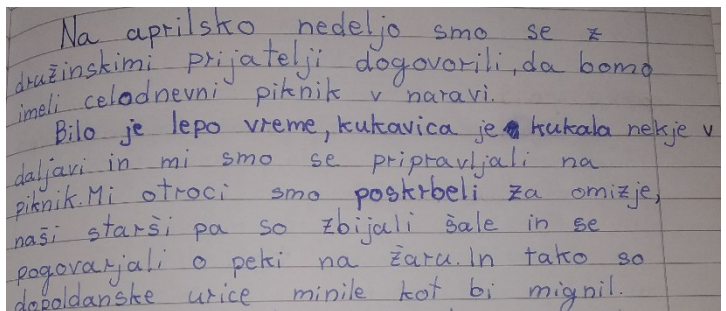 Na aprilsko nedeljo smo se z
družinskimi prijatelji dogovorili, da bomo
imeli celodnevni piknik v naravi.
Bilo je lepo vreme, kukavica je kukala nekje v
daljavi in mi smo se pripravljali na
piknik. Mi otroci smo poskrbeli za omizje,
naši starši pa so zbijali šale in se
pogovarjali o peki na žaru. In tako so
dopoldanske urice minile kot bi mignil.